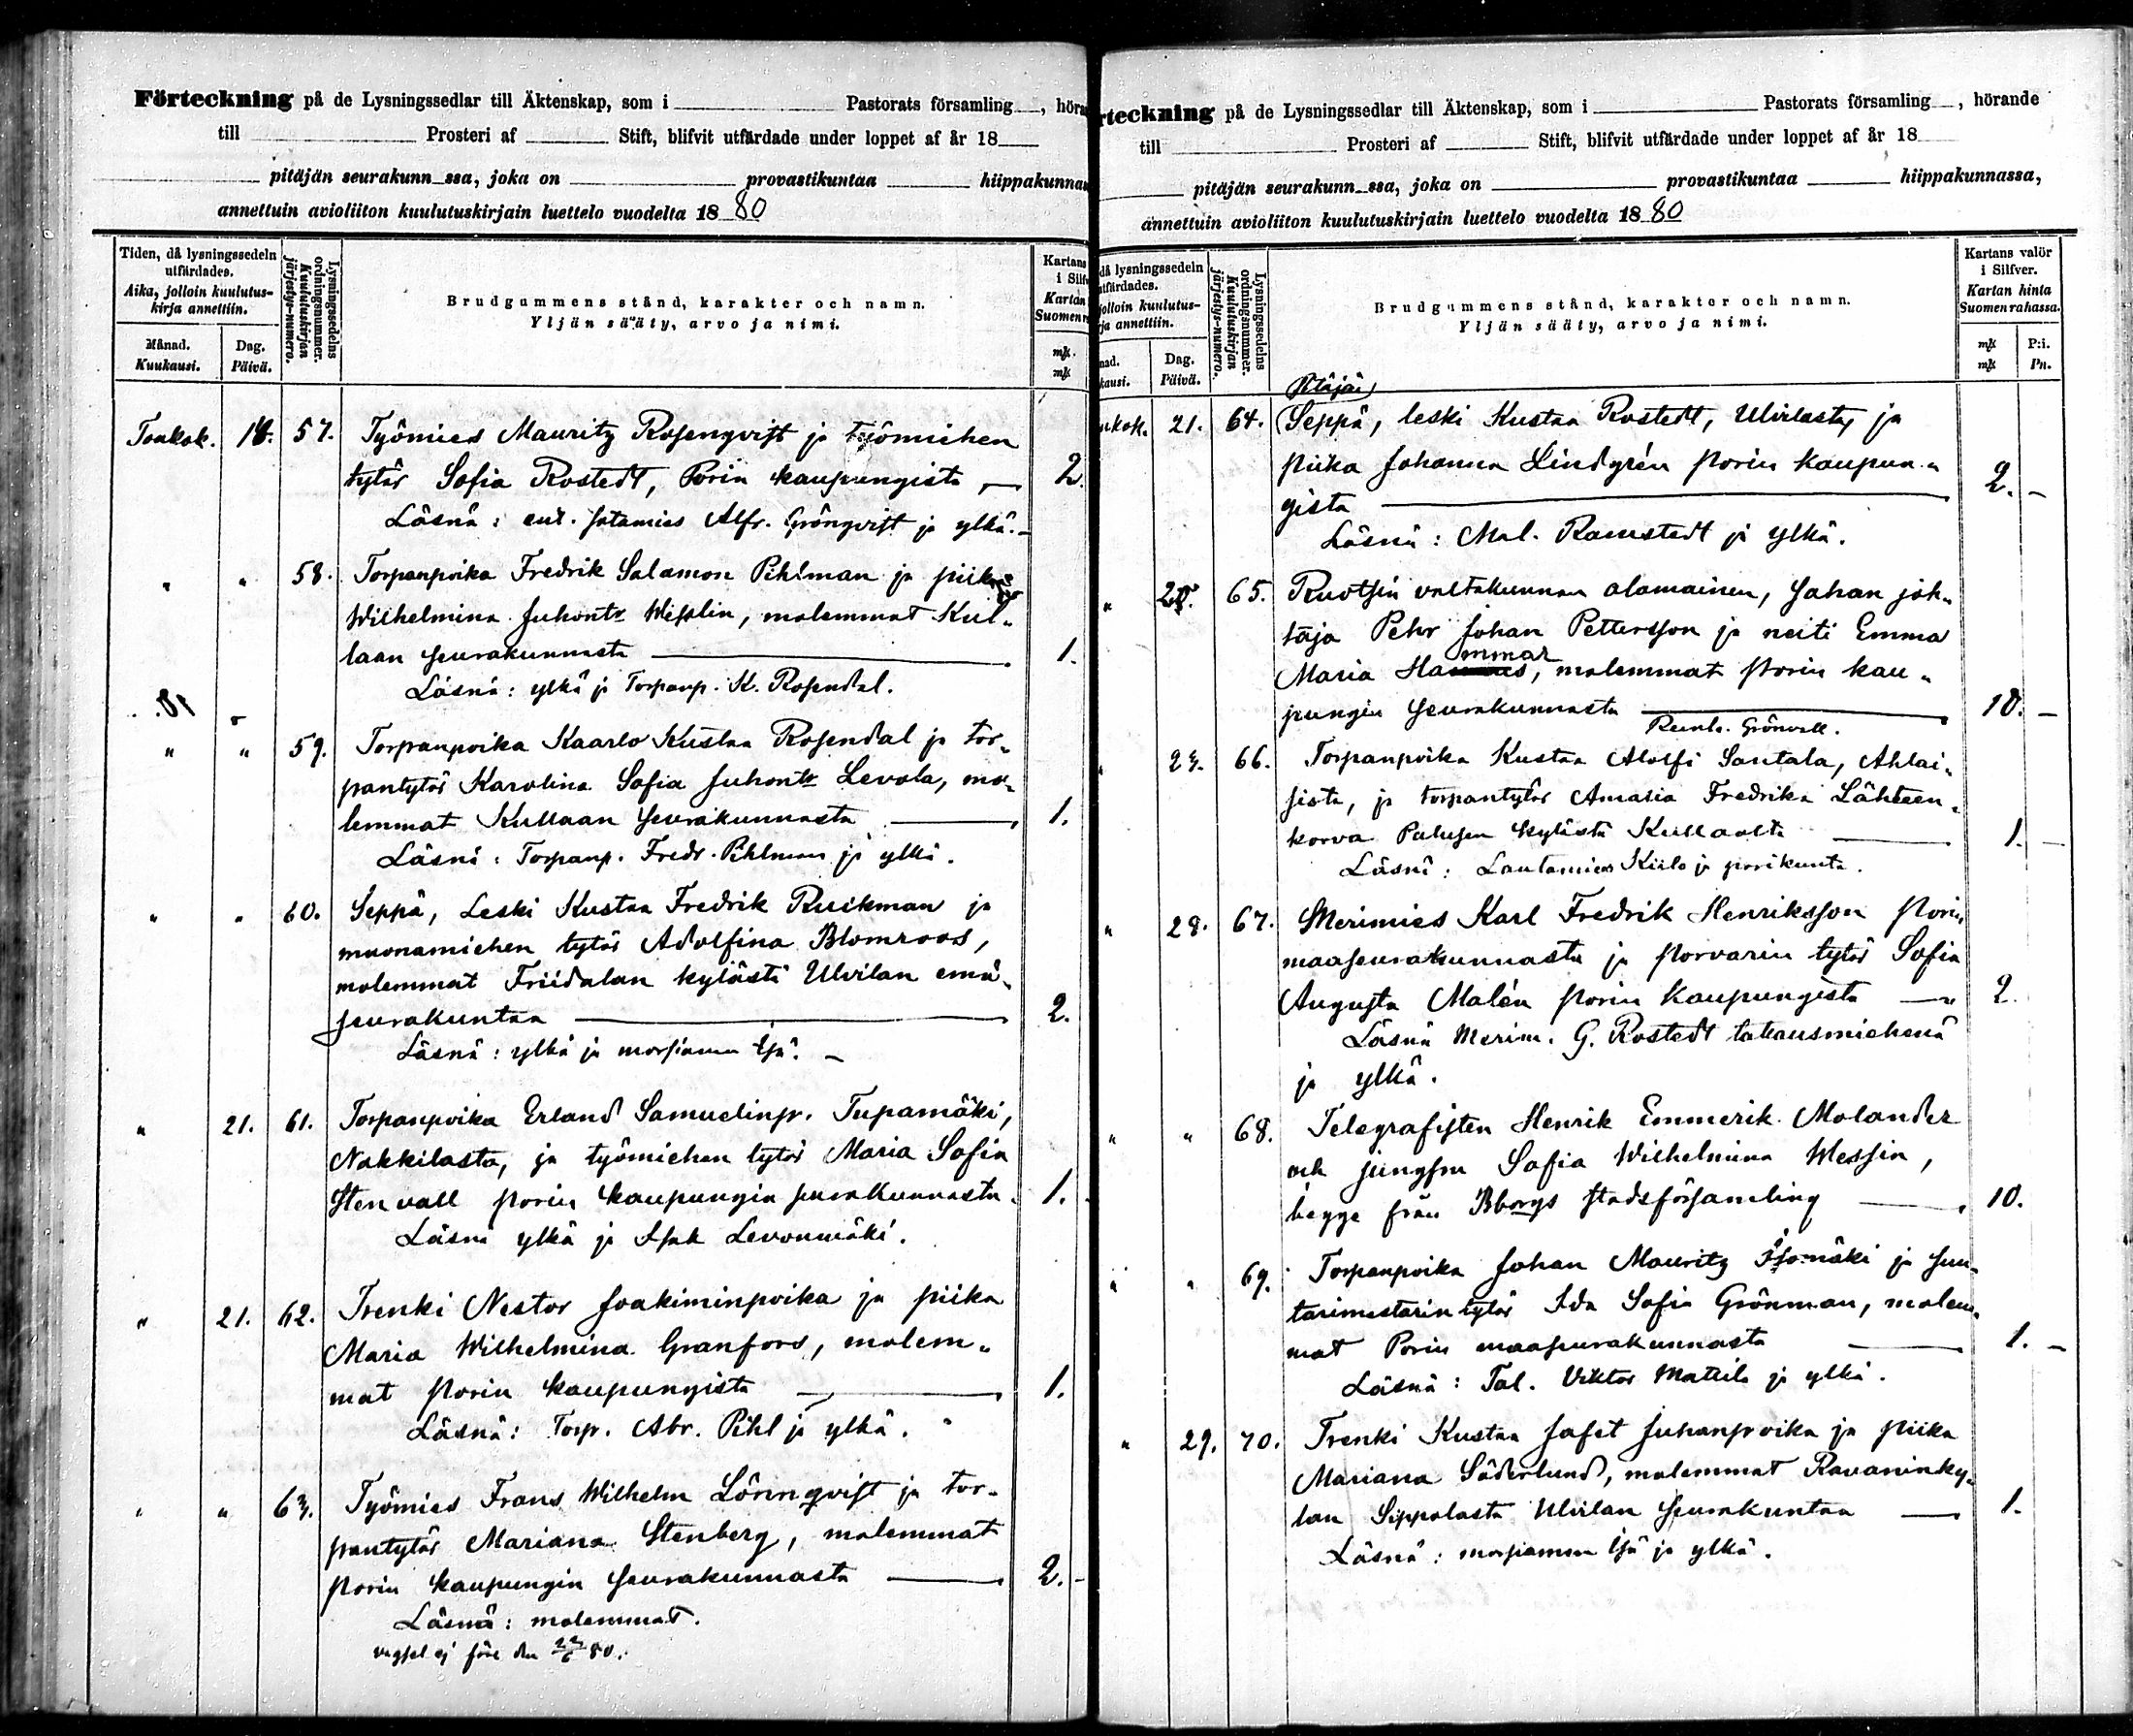 Förteckning på de Lysningssedlar till Äktenskap, som i Pastorats församling, höra
till Prosteri af Stift, blifvit utfärdade under loppet af år 18
pitäjän seurakunn ssa, joka on provastikuntaa hiippakunna
annettuin avioliiton kuulutuskirjain luettelo vuodelta 1880
Tiden, då lysningssedeln utfärdades.
Aika, jolloin kuulutuskirja annettiin.
Månad. Kuukausi.
Dag. Päivä.
Lysningssedelns ordningsnummer.
Kuulutuskirjan järjestys-numero.
Brudgummens stånd, karakter och namn.
Yljän sääty, arvo ja nimi.
Kartans
i Silf
Kartan
Suomen
mk.
mk
Toukok. 57. Työmies Mauritz Rosenqvist ja työmiehen
tytär Sofia Rostedt, Porin kaupungista — 2.
Läsnä: ent. Satamies Alfr. Grönqvist ja ylkä.
" " 58. Torpanpoika Fredrik Salamon Pihlman ja piika
Wilhelmina Juhontr, molemmat Kul-
laan seurakunnasta — 1.
Läsnä: ylkä ja Torpanp. K. Rosendal.
" " 59. Torpanpoika Kaarlo Kustaa Rosendal ja tor-
pantytär Karolina Sofia Juhontr Levola, mo-
lemmat Kullaan seurakunnasta — 1.
Läsnä: Torpanp. Fredr. Pihlman ja ylkä.
" " 60. Seppä, Leski Kustaa Fredrik Ruikman ja
muonamiehen tytär Adolfina Blomroos,
molemmat Friidalan kylästä Ulvilan emä-
seurakuntaa — 2.
Läsnä: ylkä ja morsiamen isä. —
" 21. 61. Torpanpoika Erland Samuelinp. Tupamäki,
Nakkilasta, ja työmiehen tytär Maria Sofia
Stenvall Porin kaupungin seurakunnasta. 1.
Läsnä ylkä ja Isak Levonmäki.
" 21. 62. Trenki Nestor Joakiminpoika ja piika
Maria Wilhelmina Granfors, molem-
mat Porin kaupungista — 1.
Läsnä: Torp. Abr. Pihl ja ylkä.
" " 63. Työmies Frans Wilhelm Lönnqvist ja tor-
pantytär Mariana Stenberg, molemmat
Porin kaupungin seurakunnasta — 2. -
Läsnä: molemmat.
vigsel ej före den 80.
rteckning på de Lysningssedlar till Äktenskap, som i Pastorats församling, hörande
till Prosteri af Stift, blifvit utfärdade under loppet af år 18
pitäjän seurakunn ssa, joka on provastikuntaa hiippakunnassa,
annettuin avioliiton kuulutuskirjain luettelo vuodelta 1880
då lysningssedeln
utfärdades.
jolloin kuulutus-
ja annettiin.
nad. kausi.
Dag. Päivä.
Lysningssedelns ordningsnummer.
Kuulutuskirjan järjestys-numero.
Brudgummens stånd, karakter och namn.
Yljän sääty, arvo ja nimi.
Kartans valör
i Silfver.
Kartan hinta
Suomen rahassa.
mk P:i.
mk Pn.
Pitäjän
ukok. 21. 64. Seppä, leski Kustaa Rostedt, Ulvilasta, ja
piika Johanna Lindgrén Porin kaupun-
gista — 2. -
Läsnä: Mal. Ramstedt ja ylkä.
" 65. Ruotsin valtakunnan alamainen, Sahan joh-
taja Pehr Johan Pettersson ja neiti Emma
Maria Hammar, molemmat Porin kau-
pungin seurakunnasta — 10. -
Grönvall.
" 23. 66. Torpanpoika Kustaa Adolfi Santala, Ahlai-
sista, ja torpantytär Amalia Fredrika Lähteen-
korva Palusen kylästä Kullaalta — 1. -
Läsnä: Lautamies Kiilo ja parikunta.
" 28. 67. Merimies Karl Fredrik Henriksson Porin
maaseurakunnasta ja porvarin tytär Sofia
Augusta Malén Porin kaupungista — 2.
Läsnä Merim. G. Rostedt takausmiehenä
ja ylkä.
" " 68. Telegrafisten Henrik Emmerik Molander
och jungfru Sofia Wilhelmina Wessin,
begge från Bborgs stadsförsamling — 10.
" " 69. Torpanpoika Johan Mauritz Isomäki ja sun-
tarimestarin tytär Ida Sofia Grönman, molem-
mat Porin maaseurakunnasta — 1. -
Läsnä: Tal. Viktor Mattila ja ylkä.
" 29. 70. Trenki Kustaa Jafet Juhanpoika ja piika
Mariana Söderlund, molemmat Ravaninky-
lan Sippolasta Ulvilan seurakuntaa — 1.
Läsnä: morsiamen isä ja ylkä.